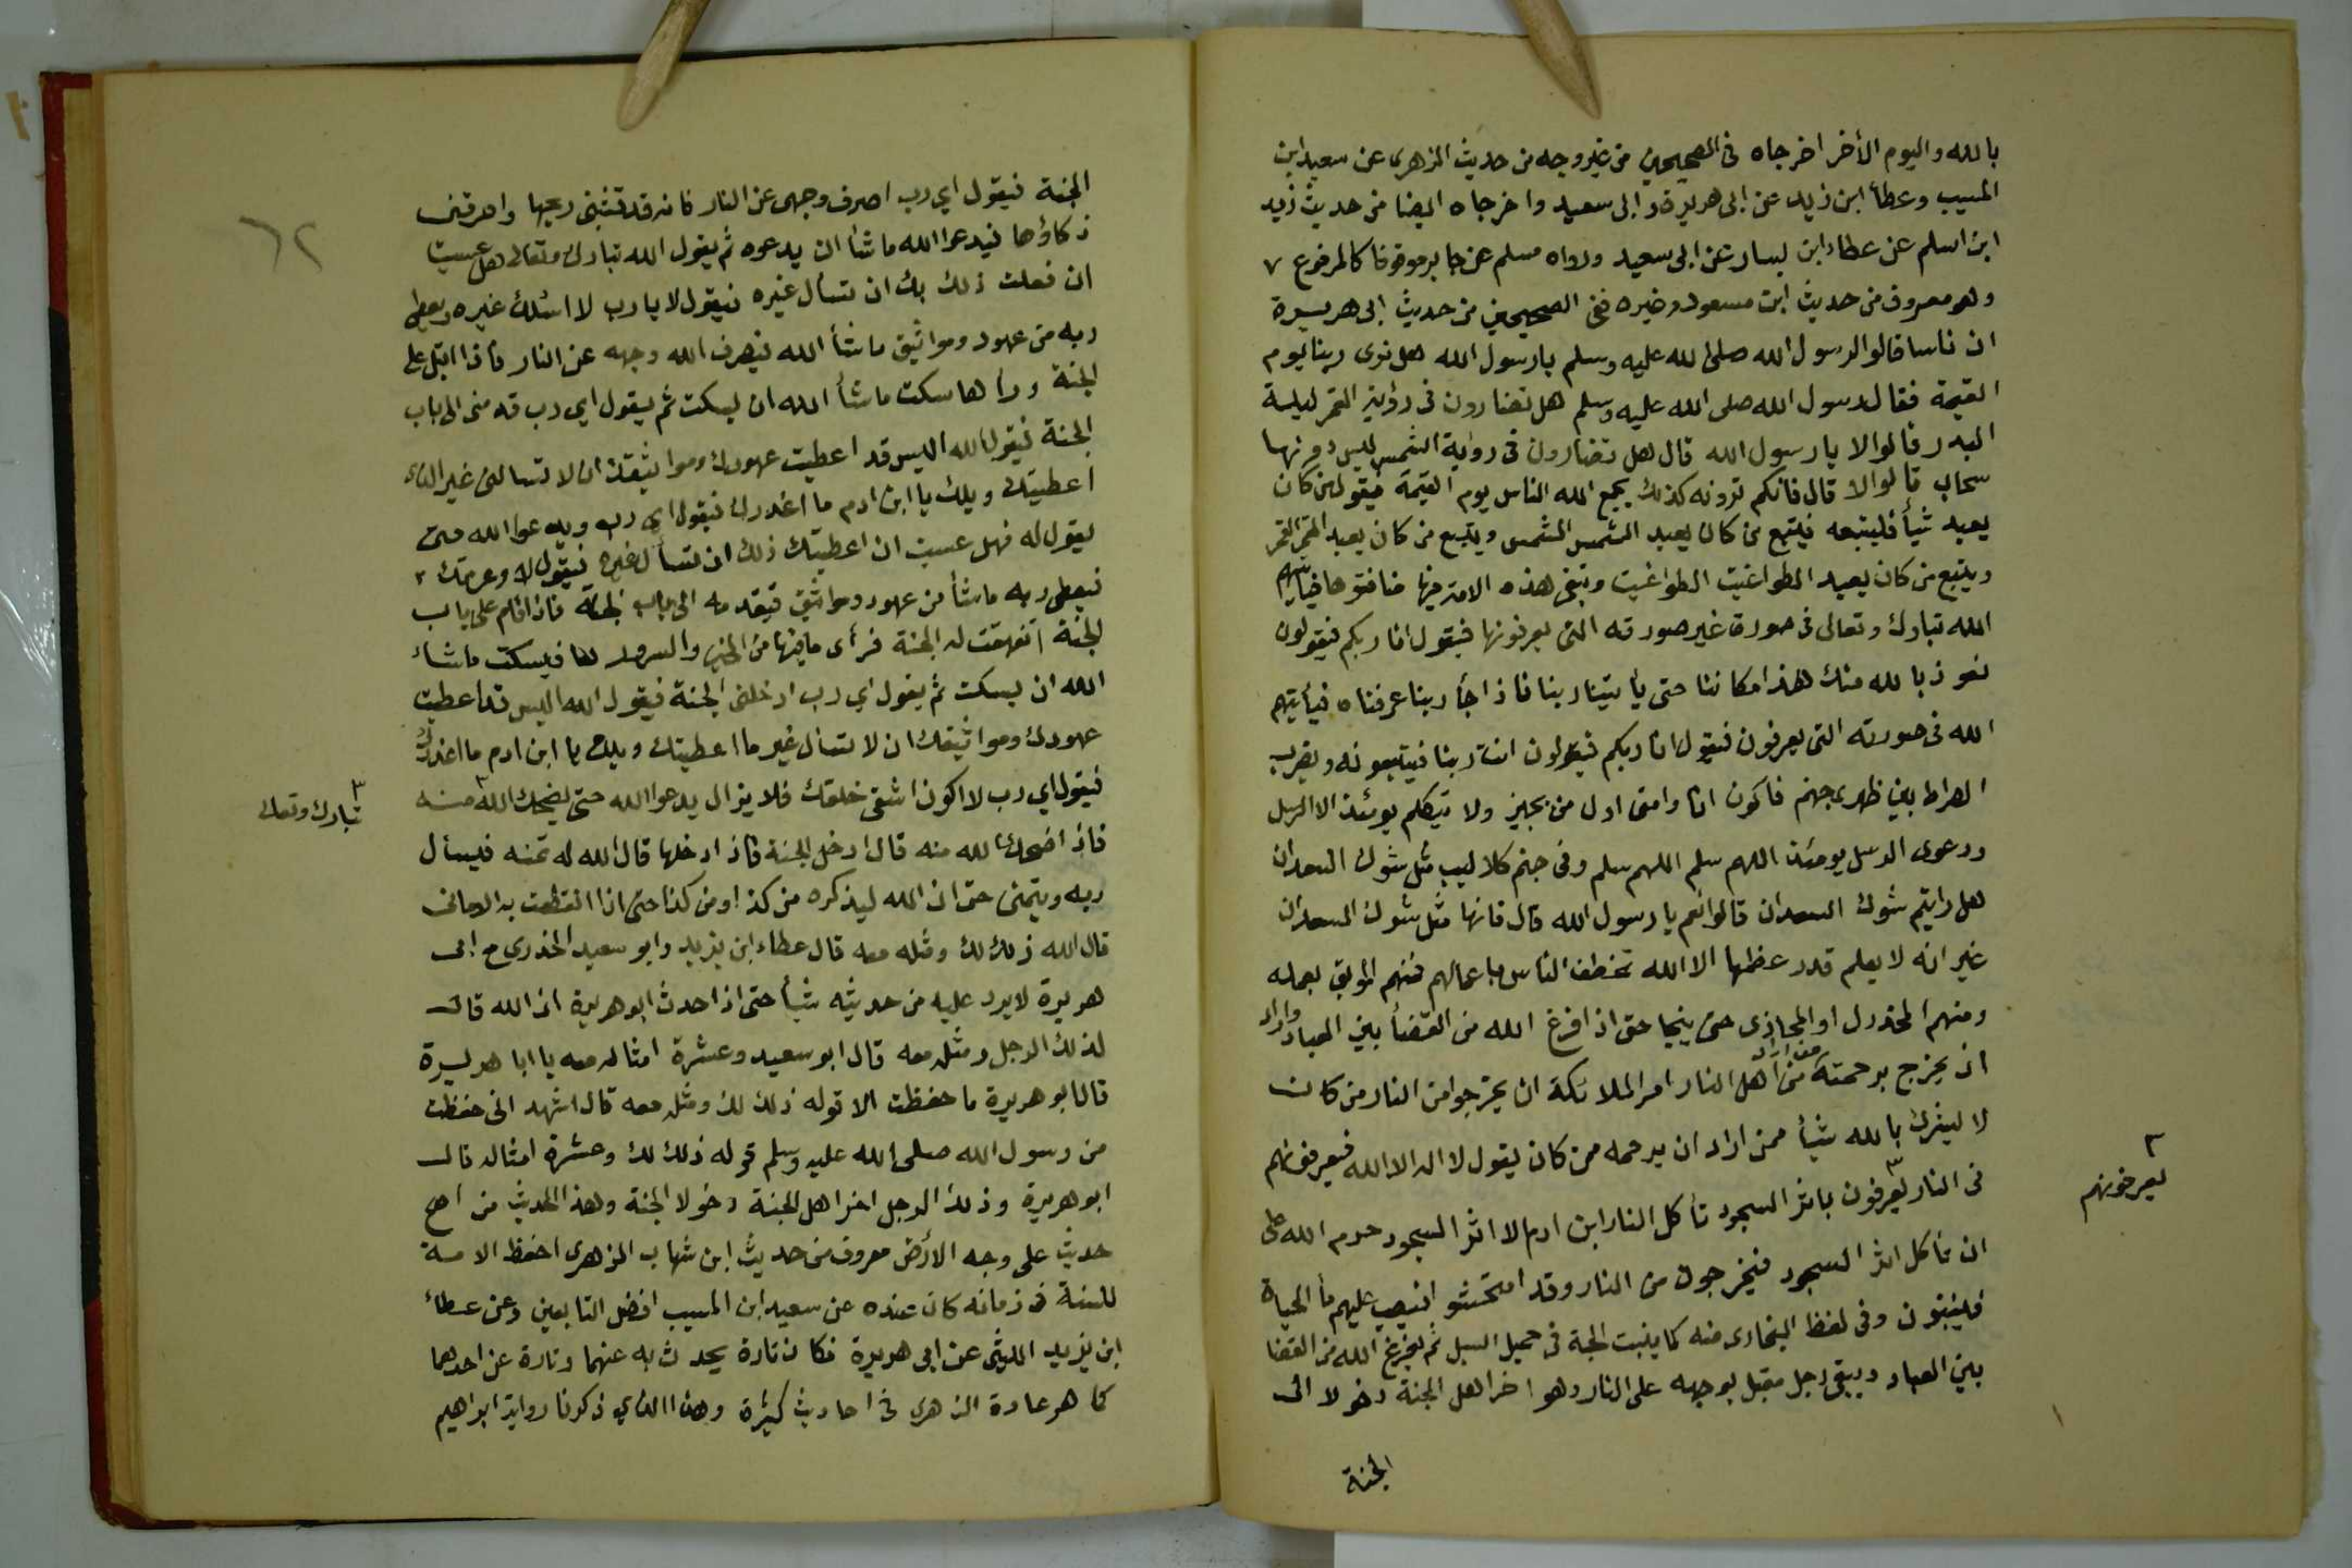 بالله واليوم الأخر اخرجاه فى الصحيحين من غير وجه من حديث الزهرى عن سعيد ابن
المسيب وعطأ ابن زيد عن ابى هريرة وابى سعيد واخرجاه ايضا من حديث زيد
ابن اسلم عن عطاء ابن يسار عن ابى سعيد ورواه مسلم عن جابر موقوفا كالمرفوع ٧
وهو معروف من حديث ابن مسعود وغيره ففى الصحيحين من حديث ابى هريرة
ان ناسا قالوا لرسول الله صلى الله عليه وسلم يارسول الله هل نرى ربنا يوم
القيمة فقال رسول الله صلى الله عليه وسلم هل تضارون فى رؤاية القمر ليلة
البدر قالوا لا يارسول الله قال هل تضارون فى رواية الشمس ليس دونها
سحاب قالوا لا قال فانكم ترونه كذلك يجمع الله الناس يوم القيمة فيقول من كان
يعبد شيأ فليتبعه فيتبع من كان يعبد الشمس الشمس ويتبع من كان يعبد القمر القمر
ويتبع من كان يعبد الطواغيت الطواغيت وتبقى هذه الامة فيها منافقوها فيأتيهم
الله تبارك وتعالى فى صورة غير صورته التى يعرفونها فيقول انا ربكم فيقولون
نعوذ بالله منك هذا مكاننا حتى يأتينا ربنا فاذا جأ ربنا عرفناه فيأتيهم
الله فى صورته التى يعرفون فيقول انا ربكم فيقولون انت ربنا فيتبعونه ويضرب
الصراط بين ظهرى جهنم فاكون انا وامتى اول من يجيز ولا يتكلم يومئذ الا الرسل
ودعوى الرسل يومئذ اللهم سلم اللهم سلم وفى جهنم كلاليب مثل شوك السعدان
هل رايتم شوك السعدان قالوا نعم يارسول الله قال فانها مثل شوك السعدان
غير انه لا يعلم قدر عظمها الا الله تخطف الناس باعمالهم فمنهم الموبق بعمله
ومنهم المخردل او المجازى حتى ينجا حتى اذ افرغ الله من القضأ بين العباد واراد
ان يخرج برحمته من اراد من اهل النار امر الملائكة ان يخرجوا من النار من كان
لا يشرك بالله شيأ ممن اراد ان يرحمه ممن كان يقول لا اله الا الله فيعرفونهم
فى النار يعرفون باثر السجود تأكل النار ابن ادم الا اثر السجود حرم الله على
٢
يعرفونهم
ان تأكل اثر السجود فيخرجون من النار وقد امتحشوا فيصب عليهم مأ الحياة
فلينبتون وفى لفظ البخارى منه كما ينبت الحبة فى حميل السيل ثم يفرغ الله من القضا
بين العباد ويبقى رجل مقبل بوجهه على النار وهو اخر اهل الجنة دخولا الى
الجنة
٦٢
الجنة فيقول اي رب اصرف وجهى عن النار فانه قد قشبنى ريحها واحرقنى
ذكاؤها فيدعوا الله ماشأ ان يدعوه ثم يقول الله تبارك وتعالى هل عسيت
ان فعلت ذلك بك ان تسأل غيره فيقول لا يارب لا اسئلك غيره ويعطى
ربه من عهود ومواثيق ماشأ الله فيصرف الله وجهه عن النار فاذا اقبل على
الجنة ورأها سكت ماشأ الله ان يسكت ثم يقول اي رب قدمنى الى باب
الجنة فيقول الله اليس قد اعطيت عهودك ومواثيقك ان لا تسالنى غير الذي
اعطيتك ويلك يا ابن ادم ما اغدرك فيقول اي رب ويدعوا الله حتى
يقول له فهل عسيت ان اعطيتك ذلك ان تسأل غيره فيقول لا وعزتك
فيعطى ربه ماشأ من عهود ومواثيق فيقدمه الى باب الجنة فاذا قام على باب
الجنة انفهقت له الجنة فرأى مافيها من الخير والسرور لها فيسكت ماشاء
الله ان يسكت ثم يقول اي رب ادخلنى الجنة فيقول الله اليس قد اعطيت
عهودك ومواثيقك ان لا تسأل غير ما اعطيتك ويلك يا ابن ادم ما اغدرك
فيقول اي رب لا اكون اشقى خلقك فلا يزال يدعوا الله حتى يضحك الله منه
٣
تبارك وتعالى
فاذ اضحك الله منه قال ادخل الجنة فاذ ادخلها قال الله له تمنه فيسأل
ربه ويتمنى حتى ان الله ليذكره من كذ اومن كذا حتى اذا انقطعت به الامانى
قال الله ذلك لك ومثله معه قال عطاء ابن يزيد وابو سعيد الخدرى مع ابى
هريرة لا يرد عليه من حديثه شيأ حتى اذا حدث ابو هريرة ان الله قال
لذلك الرجل ومثله معه قال ابو سعيد وعشرة امثاله معه يا ابا هريرة
قال ابو هريرة ما حفظت الا قوله ذلك لك ومثله معه قال اشهد انى حفظت
من رسول الله صلى الله عليه وسلم قوله ذلك لك وعشرة امثاله قال
ابو هريرة وذلك الرجل اخر اهل الجنة دخولا الجنة وهذ الحديث من اصح
حديث على وجه الأرض معروف من حديث ابن شهاب الزهرى احفظ الامة
للسنة فى زمانه كان عنده عن سعيد ابن المسيب افضل التابعين وعن عطاء
ابن يزيد الليثى عن ابى هريرة فكان تارة يحدث به عنهما وتارة عن احدهما
كما هو عادة الزهرى فى احاديث كثيرة وهذا الذي ذكرنا رواية ابراهيم